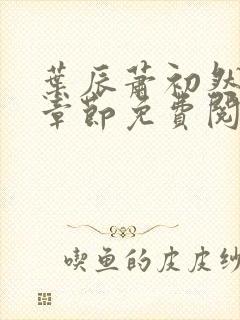 葉辰蕭初然
章節免費閱
喫魚的皮皮紗